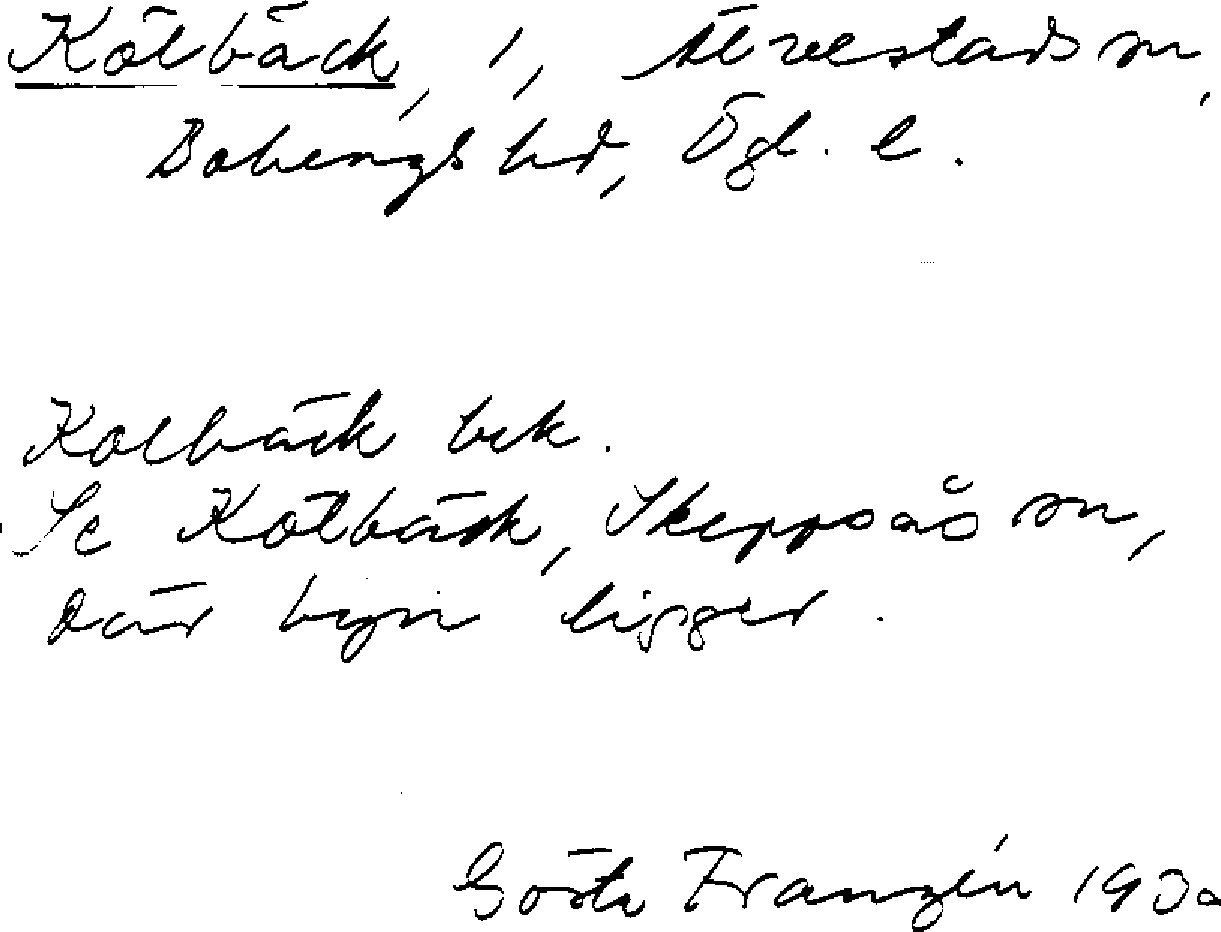 Kölbäck, 1, Älvestads sn,
Bobergs hd, Ögl. l.
Kolbäck bek.
Se Kölbäck, Skeppsås sn,
där byn ligger.
Gösta Franzén 1930